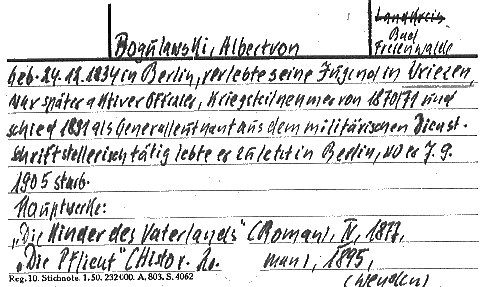 Landkreis
Bad
Freienwalde
Boguslawski, Albert von
geb. 24.12.1834 in Berlin, verlebte seine Jugend in Wriezen,
war später aktiver Offizier, Kriegsteilnehmer von 1870/71 und
schied 1891 als Generalleutnant aus dem militärischen Dienst.
Schriftstellerisch tätig lebte er zuletzt in Berlin, wo er 7.9.
1905 starb.
Hauptwerke:
„Die Kinder des Vaterlands" (Roman), IV, 1877,
„Die Pflicht" (Histor. Ro- man), 1895,
Reg. 10. Stichnote. 1. 50. 232000. A. 803. S. 4062
(wenden)